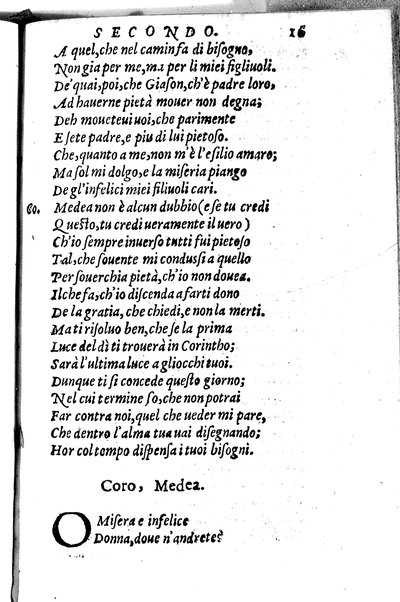 SECONDO. 16
A quel, che nel camin fa di biſogno,
Non gia per me, ma per li miei figliuoli.
De' quai, poi, che Giaſon, ch'è padre loro,
Ad hauerne pietà mouer non degna;
Deh moueteui uoi, che parimente
E ſete padre, e piu di lui pietoſo.
Che, quanto a me, non m'è l'eſilio amaro;
Ma ſol mi dolgo, e la miſeria piango
De gl'infelici miei filiuoli cari.
Co. Medea non è alcun dubbio (e ſe tu credi
Queſto, tu credi ueramente il uero)
Ch'io ſempre inuerſo tutti fui pietoſo
Tal, che ſouente mi conduſſi a quello
Per ſouerchia pietà, ch'io non douea.
Il che fa, ch'io diſcenda a farti dono
De la gratia, che chiedi, e non la merti.
Ma ti riſoluo ben, che ſe la prima
Luce del dì ti trouerà in Corintho;
Sarà l'ultima luce a gliocchi tuoi.
Dunque ti ſi concede queſto giorno;
Nel cui termine ſo, che non potrai
Far contra noi, quel che ueder mi pare,
Che dentro l'alma tua uai diſegnando;
Hor col tempo diſpenſa i tuoi biſogni.
Coro, Medea.
O Miſera e infelice
Donna, doue n'andrete?